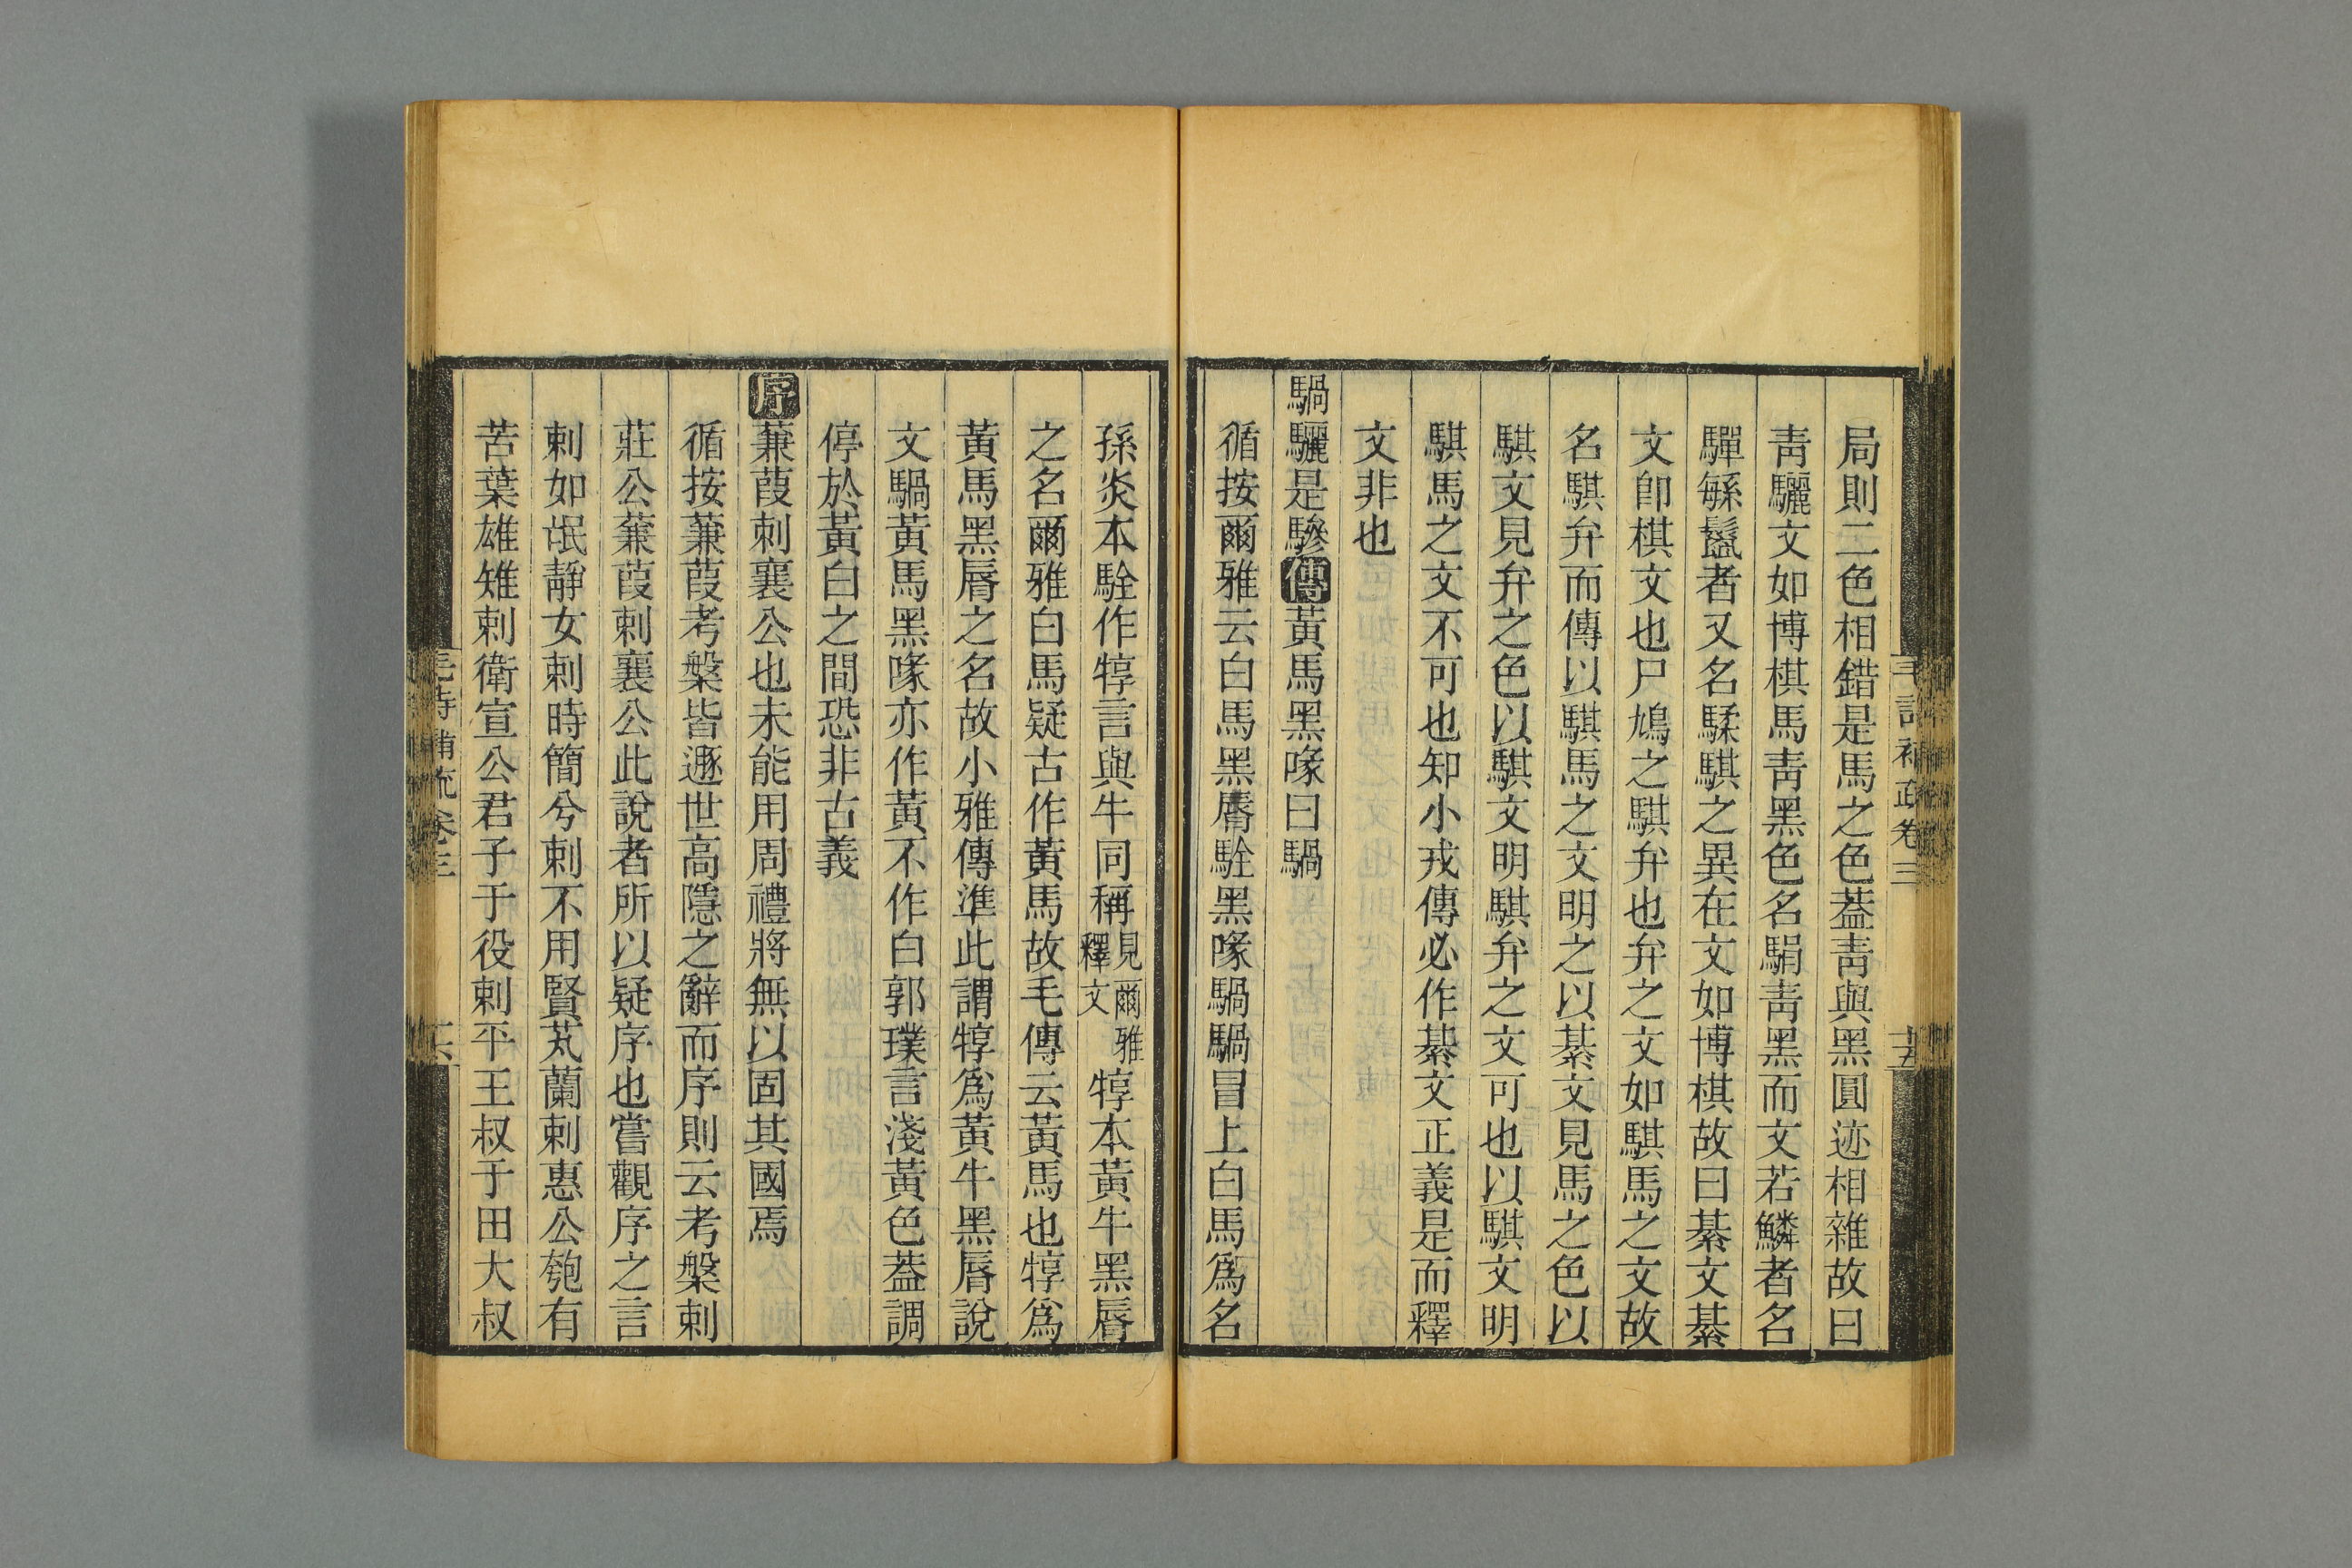 局則二色相錯是馬之色葢靑與黑圓迹相雜故曰
靑驪文如博棋馬靑黑色名駽靑黑而文若鱗者名
驒緐鬣者又名騥騏之異在文如博棋故曰綦文綦
文卽棋文也尸鳩之騏弁也弁之文如騏馬之文故
名騏弁而傳以騏馬之文明之以綦文見馬之色以
騏文見弁之色以騏文明騏弁之文可也以騏文明
騏馬之文不可也知小戎傳必作綦文正義是而釋
文非也
騧驪是驂傳黃馬黑喙曰騧
循按爾雅云白馬黑脣駩黑喙騧騧冒上白馬爲名
孫炎本駩作犉言與牛同稱見爾雅釋文犉本黃牛黑脣
之名爾雅白馬疑古作黃馬故毛傳云黃馬也犉爲
黃馬黑脣之名故小雅傳準此謂犉爲黃牛黑脣說
文騧黃馬黑喙亦作黃不作白郭璞言淺黃色葢調
停於黃白之間恐非古義
序蒹葭刺襄公也未能用周禮將無以固其國焉
循按蒹葭考槃皆遯世高隱之辭而序則云考槃刺
莊公蒹葭刺襄公此說者所以疑序也嘗觀序之言
刺如氓靜女刺時簡兮刺不用賢芄蘭刺惠公匏有
苦葉雄雉刺衛宣公君子于役刺平王叔于田大叔
毛詩補疏卷三